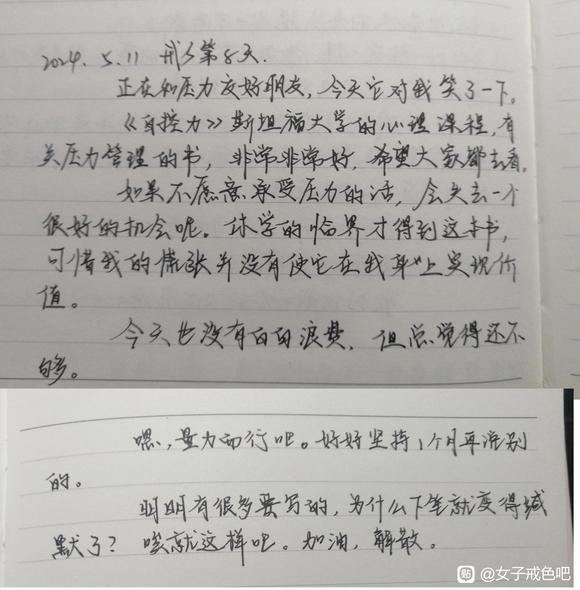 2024.5.11 戒色第8天.
正在和压力交好朋友,今天它对我笑了一下。
《自控力》斯坦福大学的心理课程,有
关压力管理的书,非常非常好,希望大家都去看。
如果不愿意承受压力的话,会失去一个
很好的机会呢。休学的临界才得到这本书,
可惜我的慵张并没有使它在我身上实现价
值。
今天也没有白白浪费,但总觉得还不
够。
嗯,量力而行吧。好好坚持1个月再说别
的。
明明有很多要写的,为什么下笔就变得缄
默了?唉就这样吧。加油,解散。
贴 @女子戒色吧